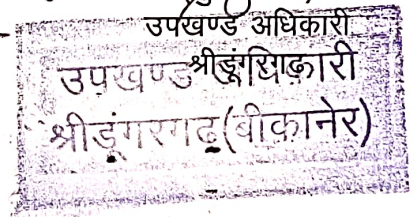 उपखण्ड अधिकारी
श्रीडूंगरगढ़
उपखण्ड अधिकारी
श्रीडूंगरगढ़ (बीकानेर)